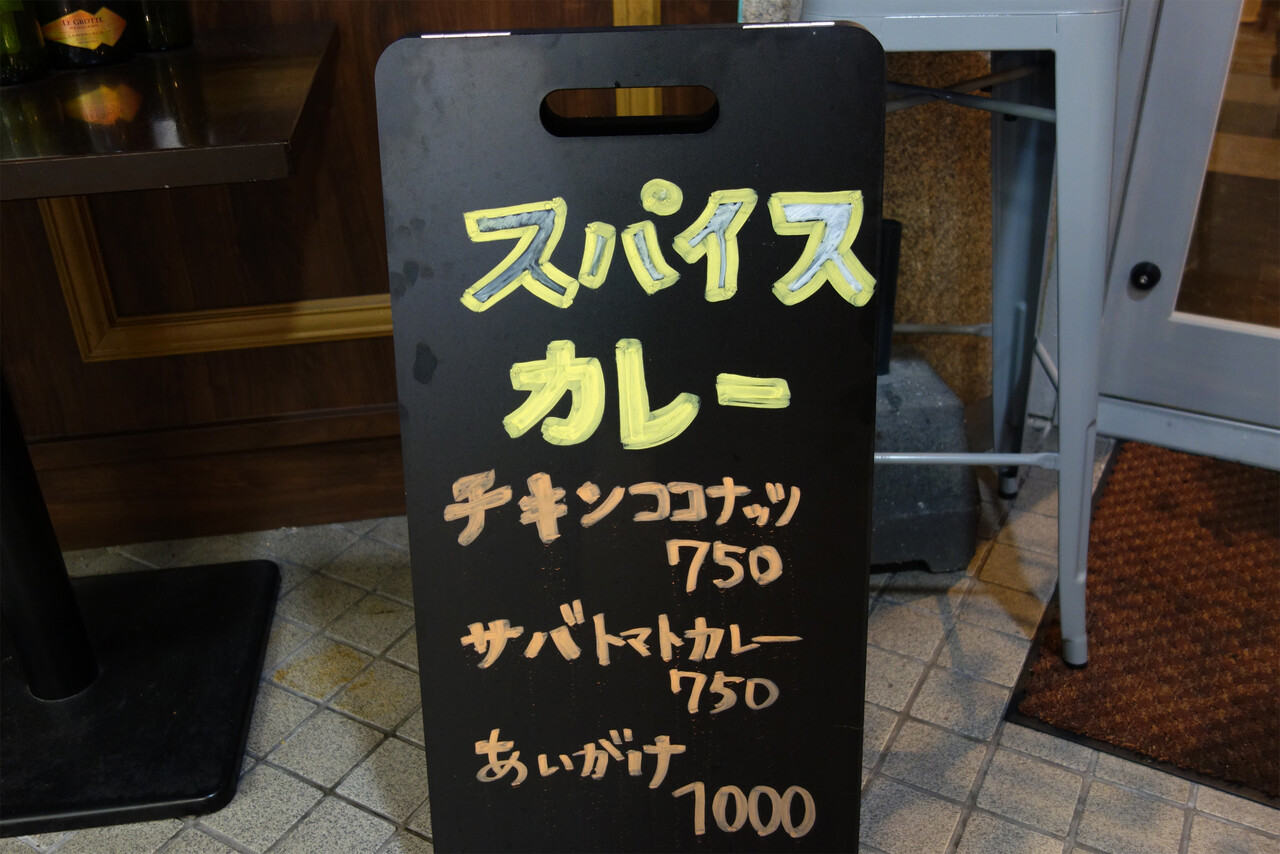 LE GROTTE
スパイス
カレー
チキンココナッツ
750
サバトマトカレー
750
あいがけ
1000